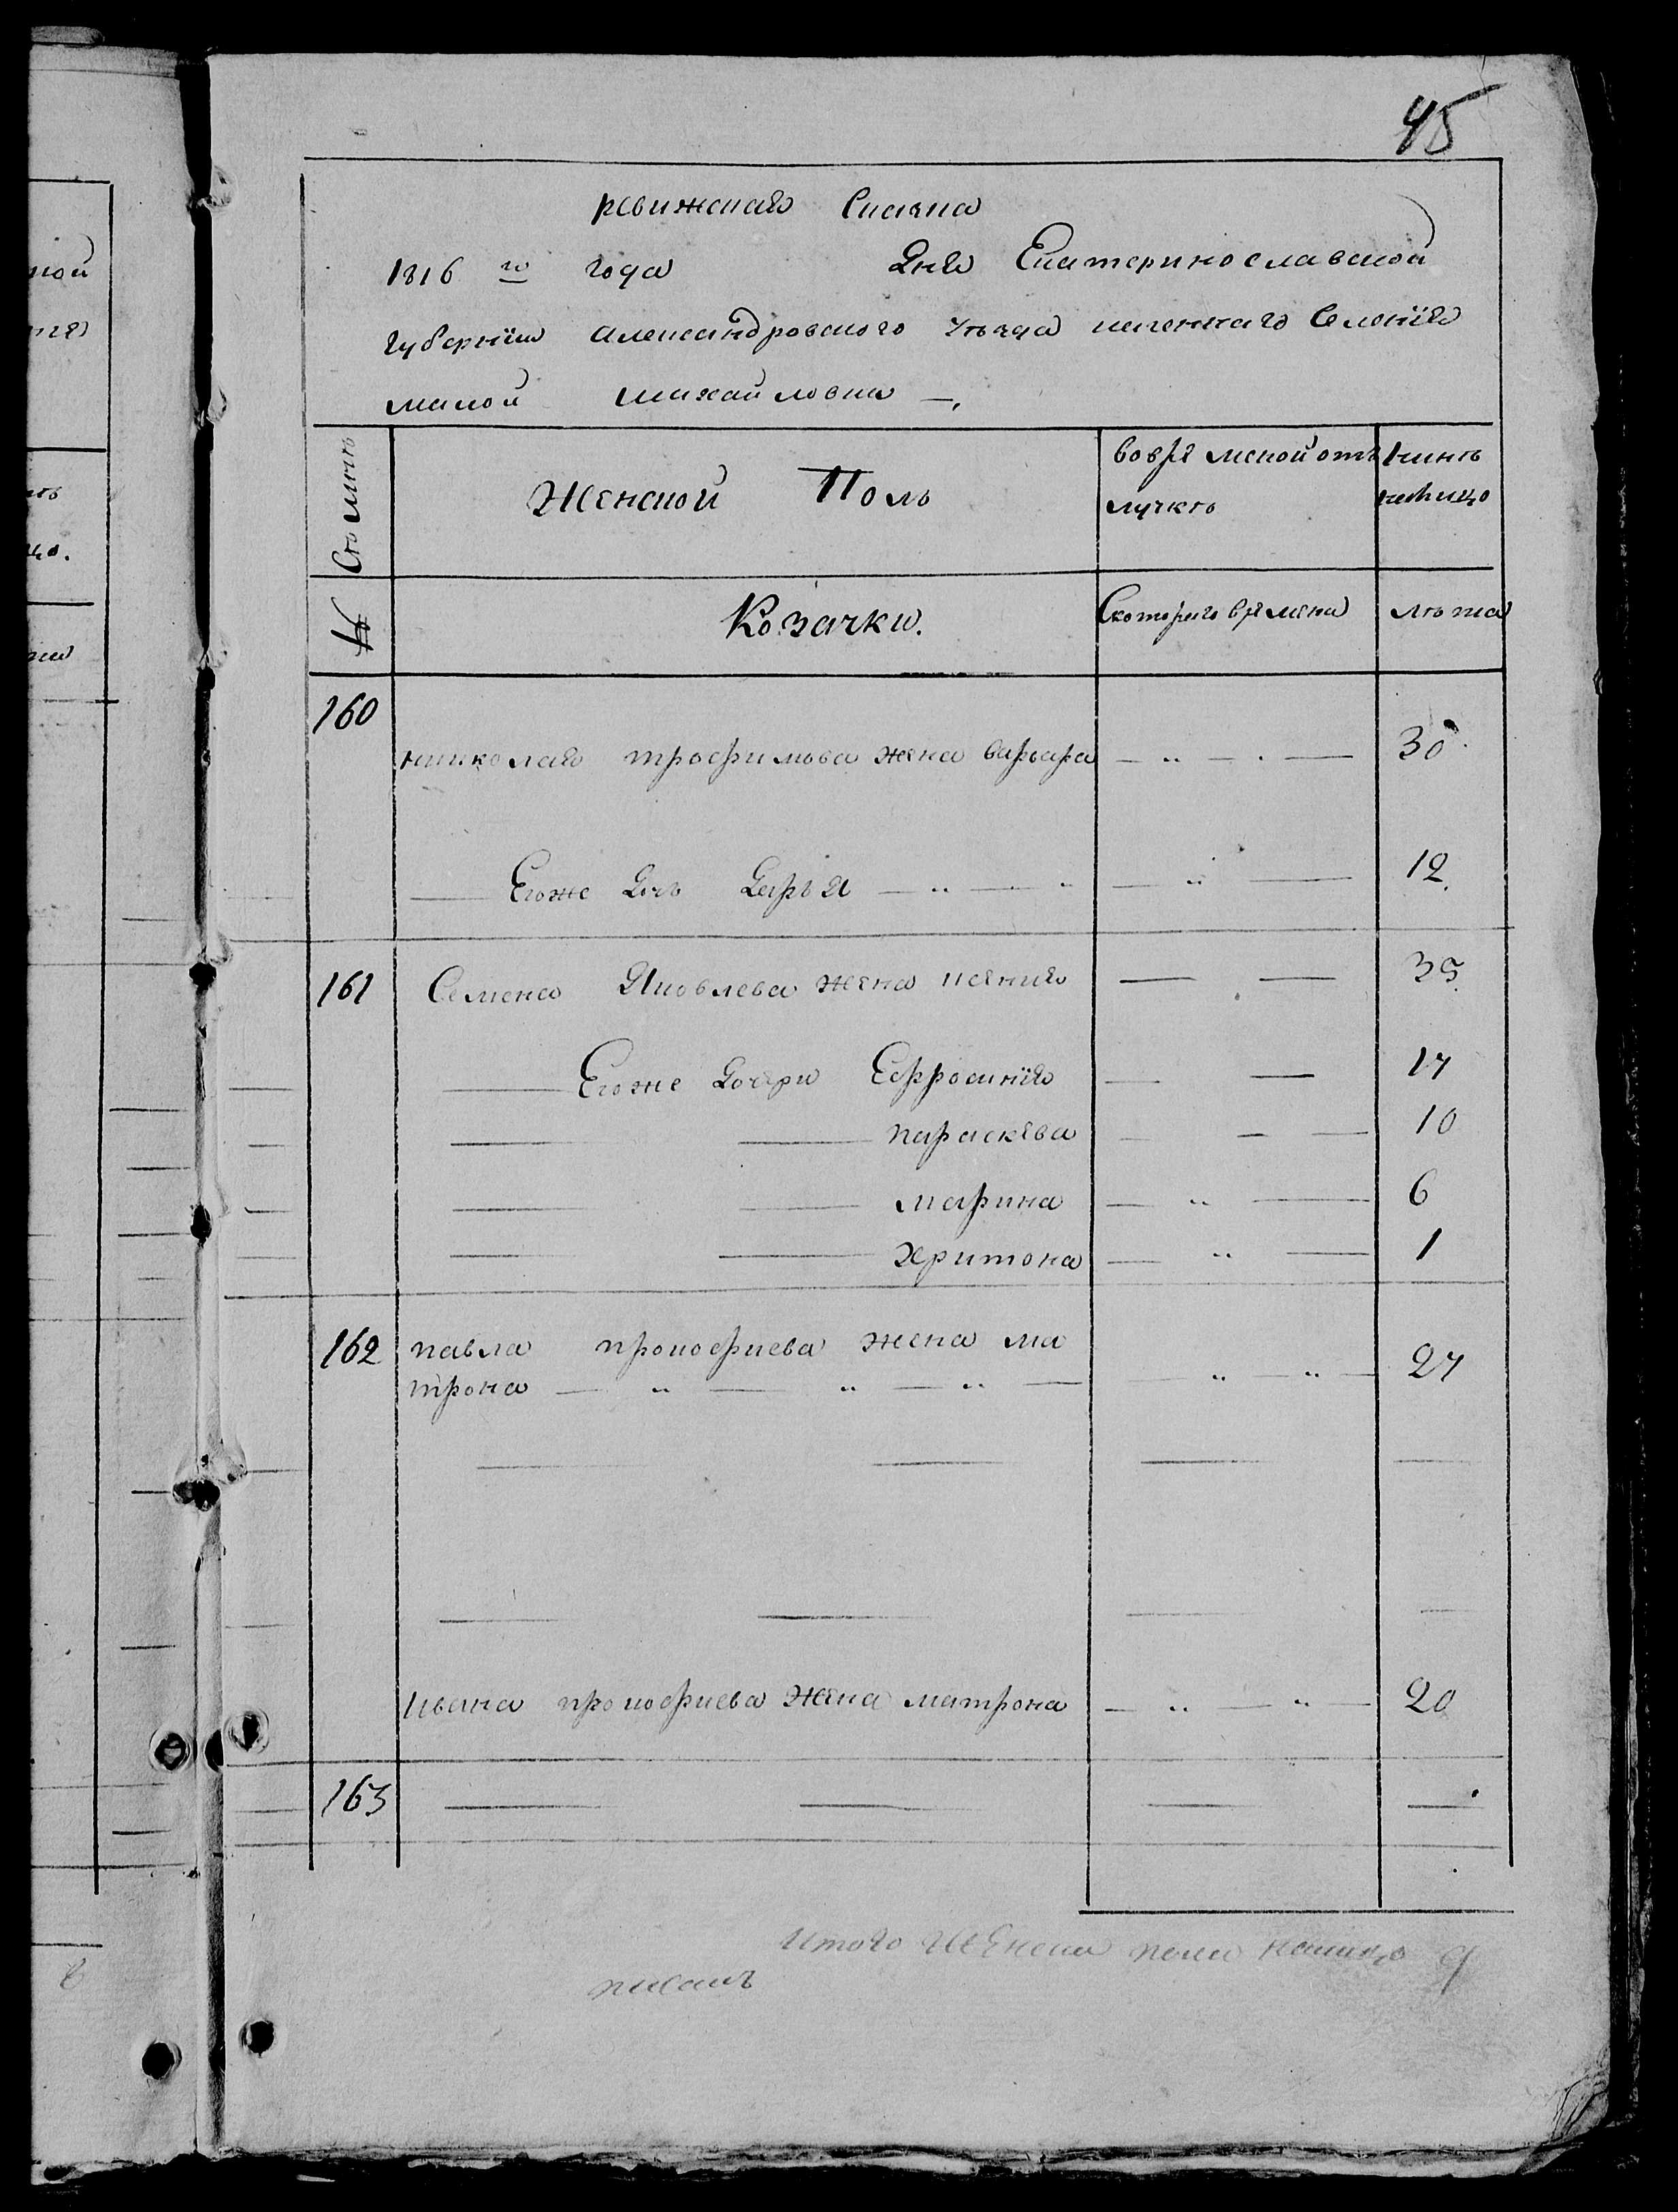 45
ревижская Скаска
1816 го года Дня Екатеринославской
губернии александровского уѣзда казеннаго Селения
малой михайловки —.
№ Сѣмьи
Женской Полъ
вовремянной отлучкѣ
Нинѣ налицо
Козачки.
Скоторого времяни
лѣта
160
николая трофимова жена варвара — " — . — 30
— Егоже Дочь Дарья — " — " — " — 12.
161 Семена Яковлева жена ксения — — 35.
— Егоже Дочери Ефросиния — — 17
— — параскева — — — 10
— — марина — " — 6
— — Хритона — " — 1
162 павла прокофиева жена ма
трона — " — " — " — " — " — 27
— — — —
— — — —
Ивана прокофиева жена матрона — " — " — 20
163 — — — —
Итого женска пола налицо 9